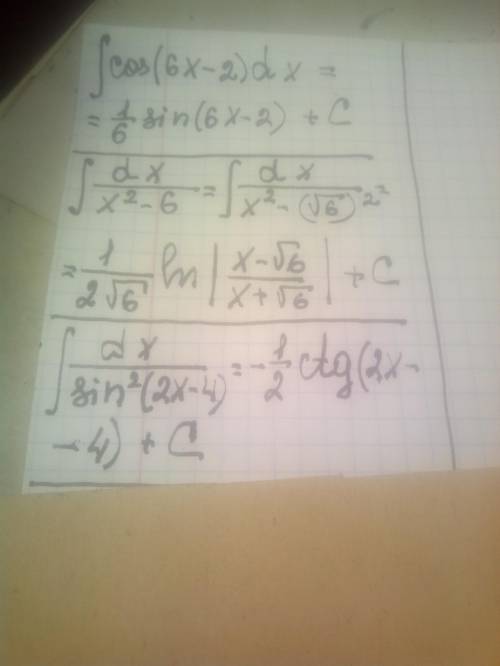 ∫cos(6x-2)dx =
= 1/6 sin(6x-2) + C
∫ dx/(x²-6) = ∫ dx/(x²-(√6)²) =
= 1/(2√6) ln |(x-√6)/(x+√6)| + C
∫ dx/(sin²(2x-4)) = -1/2 ctg(2x-
-4) + C